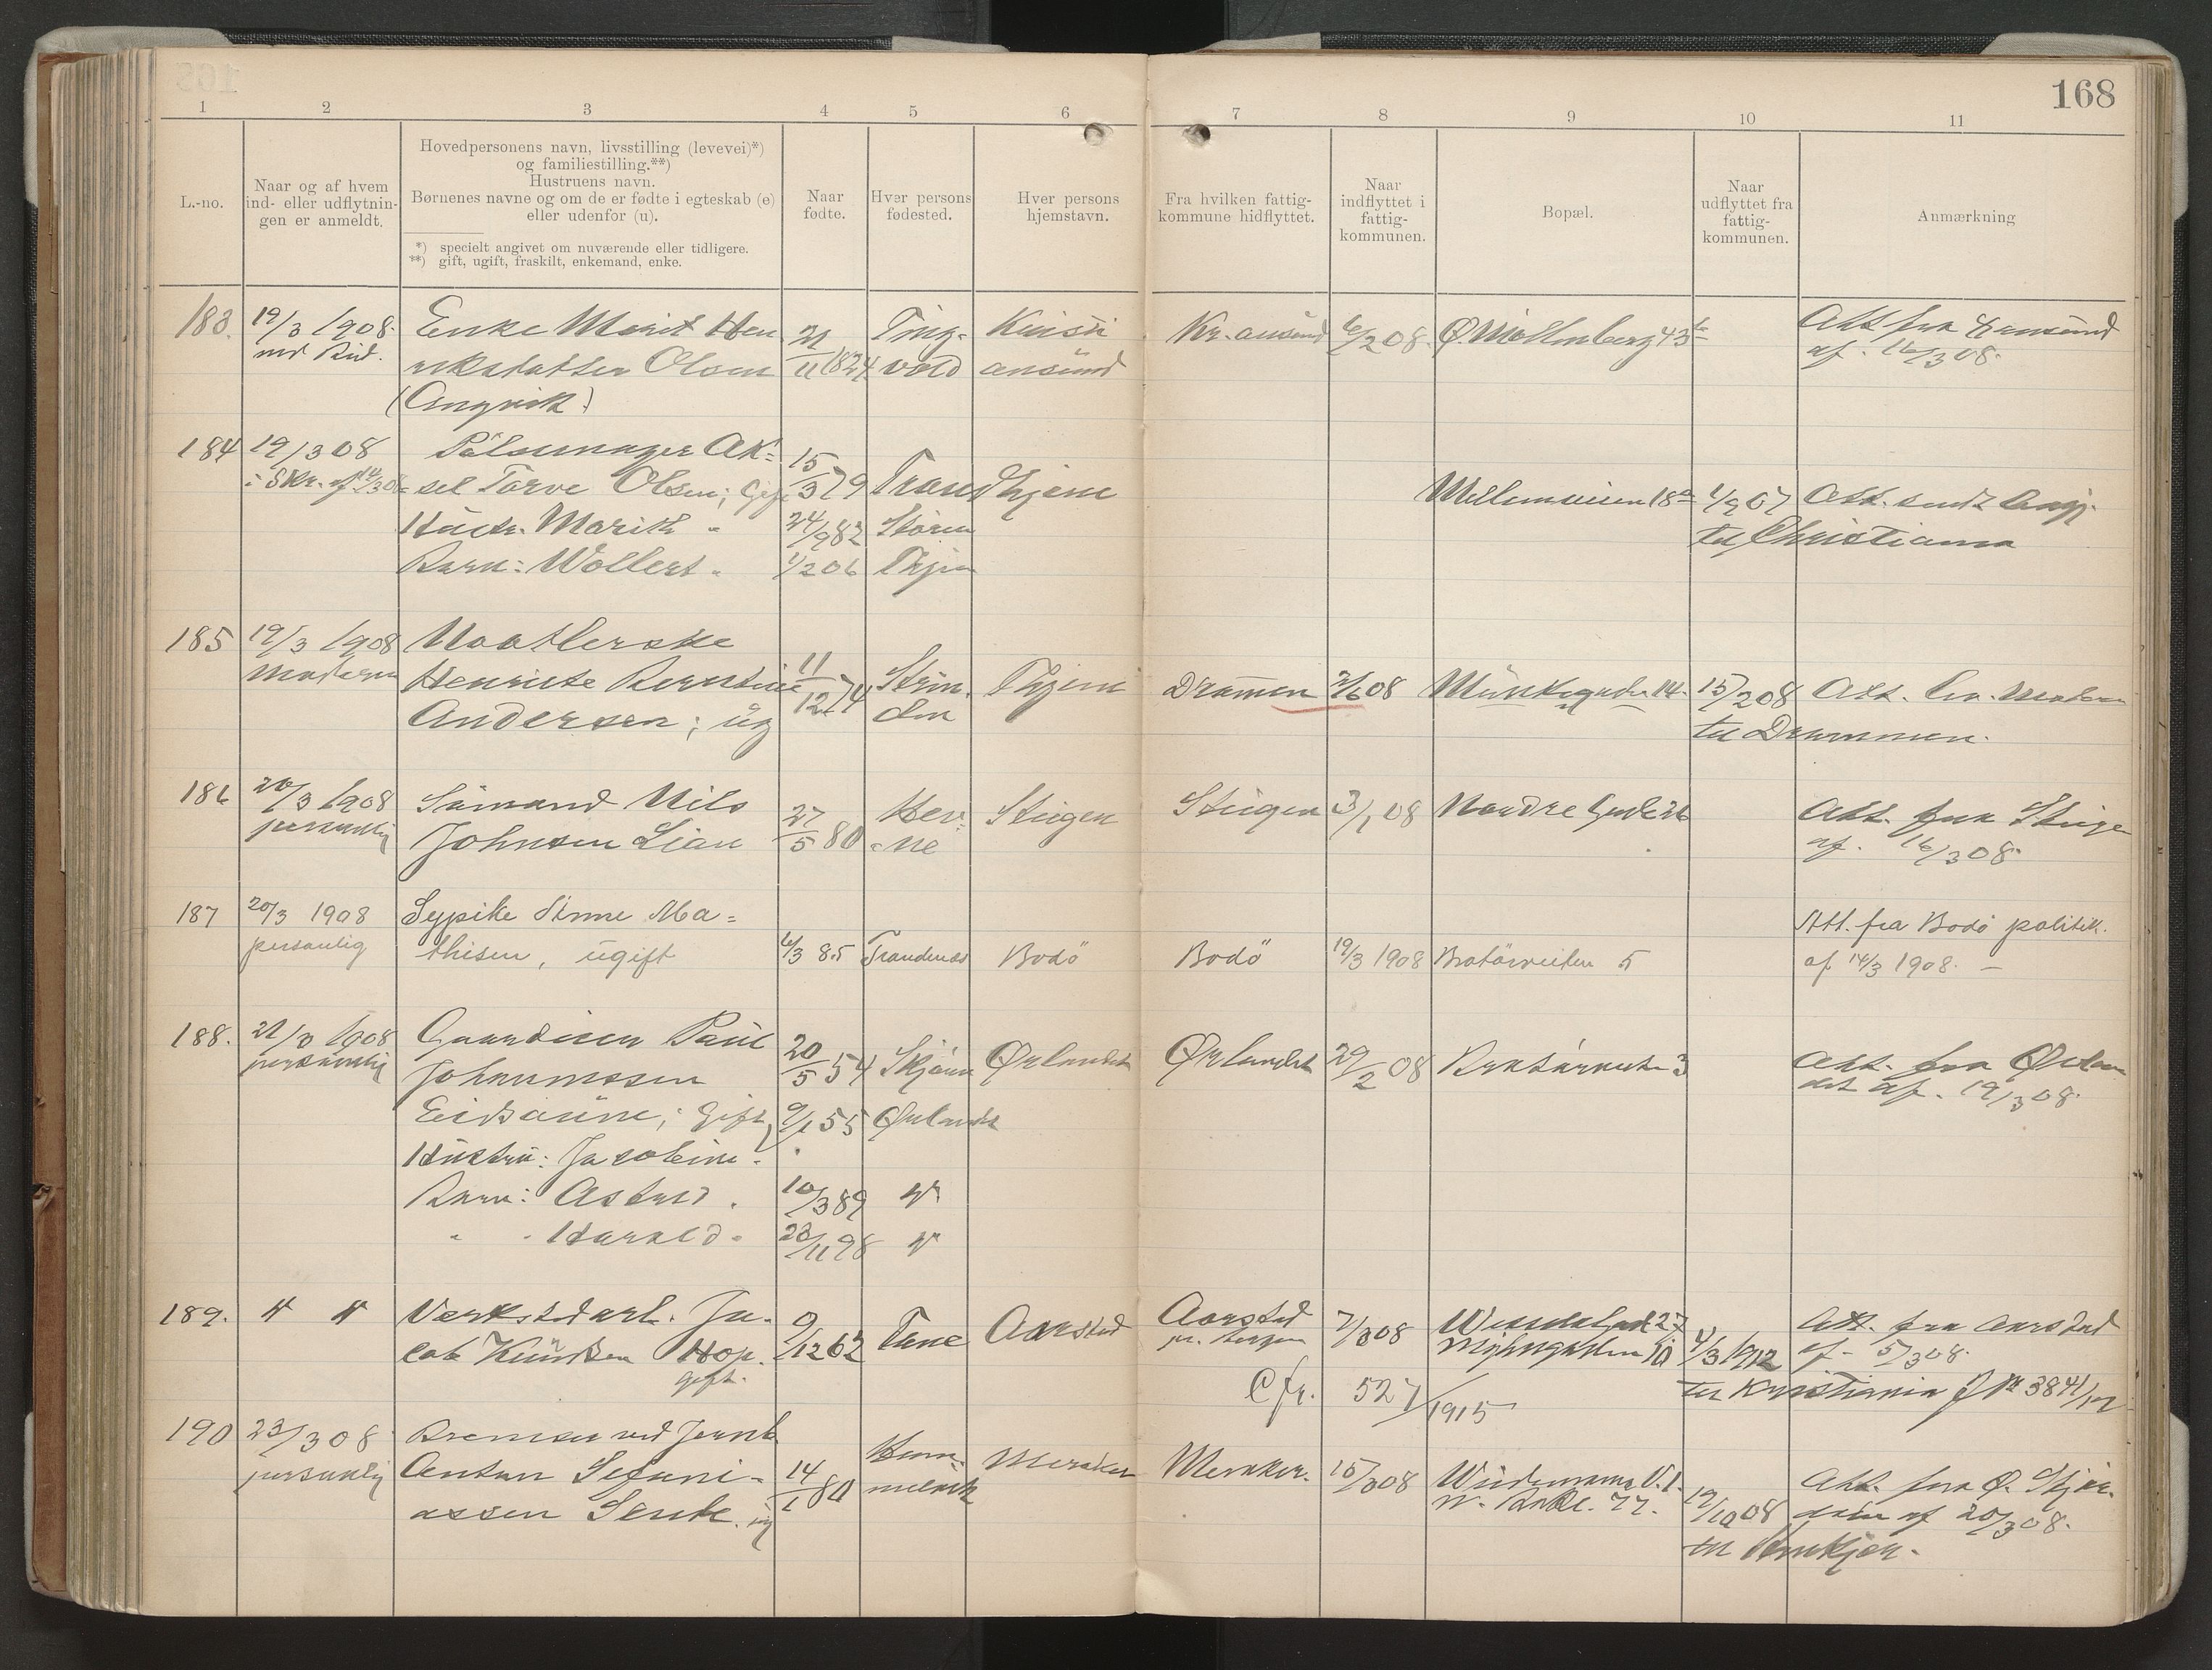 168
1 2 3 4 5 6 7 8 9 10 11
L.-no.
Naar og af hvem
ind- eller udflytnin-
gen er anmeldt.
Hovedpersonens navn, livsstilling (levevei)*)
og familiestilling.**)
Hustruens navn.
Børnenes navne og om de er fødte i egteskab (e)
eller udenfor (u).
*) specielt angivet om nuværende eller tidligere.
**) gift, ugift, fraskilt, enkemand, enke.
Naar
fødte.
Hver persons
fødested.
Hver persons
hjemstavn.
Fra hvilken fattig-
kommune hidflyttet.
Naar
indflyttet i
fattig-
kommunen.
Bopæl.
Naar
udflyttet fra
fattig-
kommunen.
Anmærkning
183. 19/3 1908. Enke Marit Hen Ting- Kristi Kr. ansund 6/2 08. Ø. Møllenberg 43 Att. fra
rikstatter Olsen 21/11 1824 vold ansund af. 16/3 08.
(Angvik)
184 19/3 08 Pølsemager Ak=
sel Torve Olsen; Gift 15/3 79 Trondhjem 18 1/9 07 Att. sendt
Hustr. Marith " 24/9 82 Støren til Christiania
Barn: Wollert " 1/2 06 Thjem
185 19/3 1908
Henriete Berntine 11/12 74 Strin- Thjem Drammen 2/6 08 Munkegaden 14. 15/2 08 Att.
Andersen; ug den til Drammen.
186 20/3 1908 Sømand Nils Hev- Steigen Steigen 3/1 08 Nordre Att. fra Steigen
personlig Johnsen Lian 27/5 80 -ne af. 16/3 08.
187 20/3 1908 Sypike Stinne Ma= Att. fra Bodö politik.
personlig thisen, ugift 6/3 85 Trondenæs Bodö Bodö 19/3 1908 Bratörveiten 5 af 14/3 1908. —
188. 21/3 1908 Gaardsier Paul 20/5 54 Skjørn Ørlandet Ørlandet 29/2 08 Bratørveiten 3 Att. fra Ørlan
personlig Johannessen det af. 19/3 08.
Eidsaune; Gift, 9/1 55 Ørlandet
Hustru: Jacobine "
Barn: Astrid " 10/3 89 "
" " Harald " 28/11 98 "
189. " " Verkstedarb. Ja- 9/12 62 Tane Aarstad Aarstad 7/3 08 27 Att. fra Aarstad
cob Knudsen Hop. pr. Bergen 4/3 1912 af - 5/3 08.
gift. Cfr. 527/1915 til Kristiania J No 3841/12
190 23/3 08 Bremser ved Jernb. Hom- Meraker Meraker. 15/3 08 Att. fra Ø. Stjør-
personlig Anton Stefani- 14/1 80 melvik 77. 12/10 08 dalen af 20/3 08.
assen til Stenkjær.